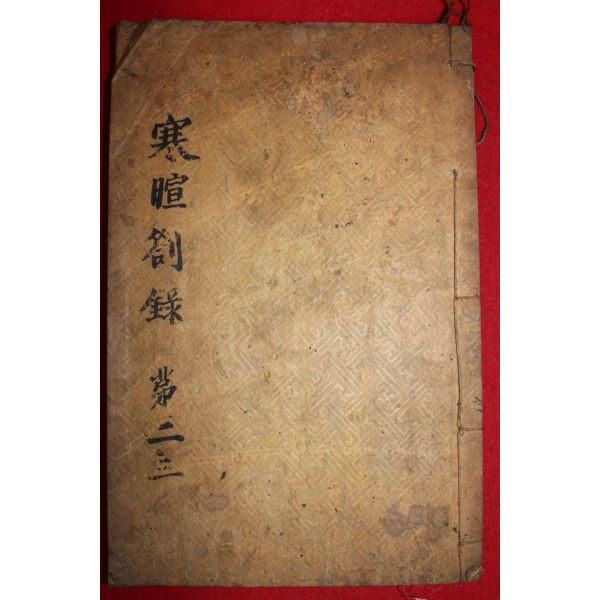 寒暄劄錄 第二三